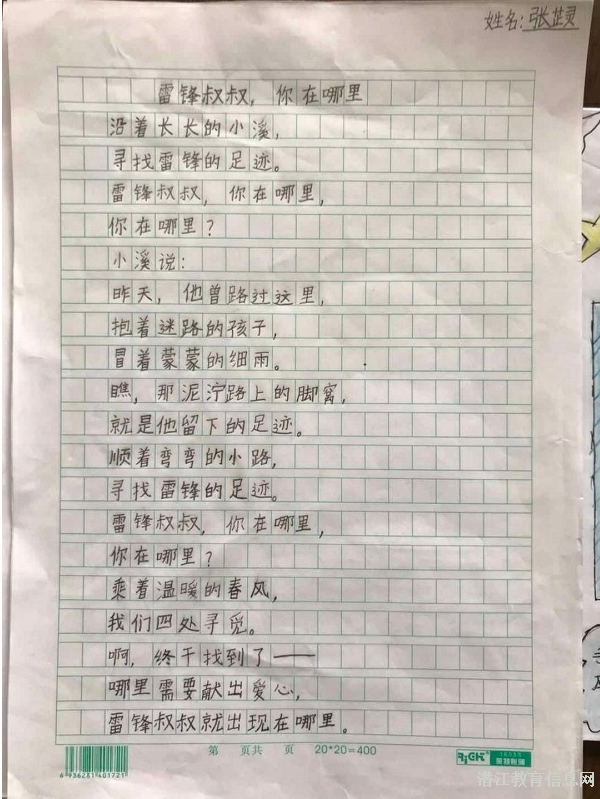 姓名:张芷灵
雷锋叔叔，你在哪里
沿着长长的小溪，
寻找雷锋的足迹。
雷锋叔叔，你在哪里，
你在哪里？
小溪说：
昨天，他曾路过这里，
抱着迷路的孩子，
冒着蒙蒙的细雨。
瞧，那泥泞路上的脚窝，
就是他留下的足迹。
顺着弯弯的小路，
寻找雷锋的足迹。
雷锋叔叔，你在哪里，
你在哪里？
乘着温暖的春风，
我们四处寻觅。
啊，终于找到了——
哪里需要献出爱心，
雷锋叔叔就出现在哪里。
第 页共 页 20*20=400
6 936281 401721
潜江教育信息网